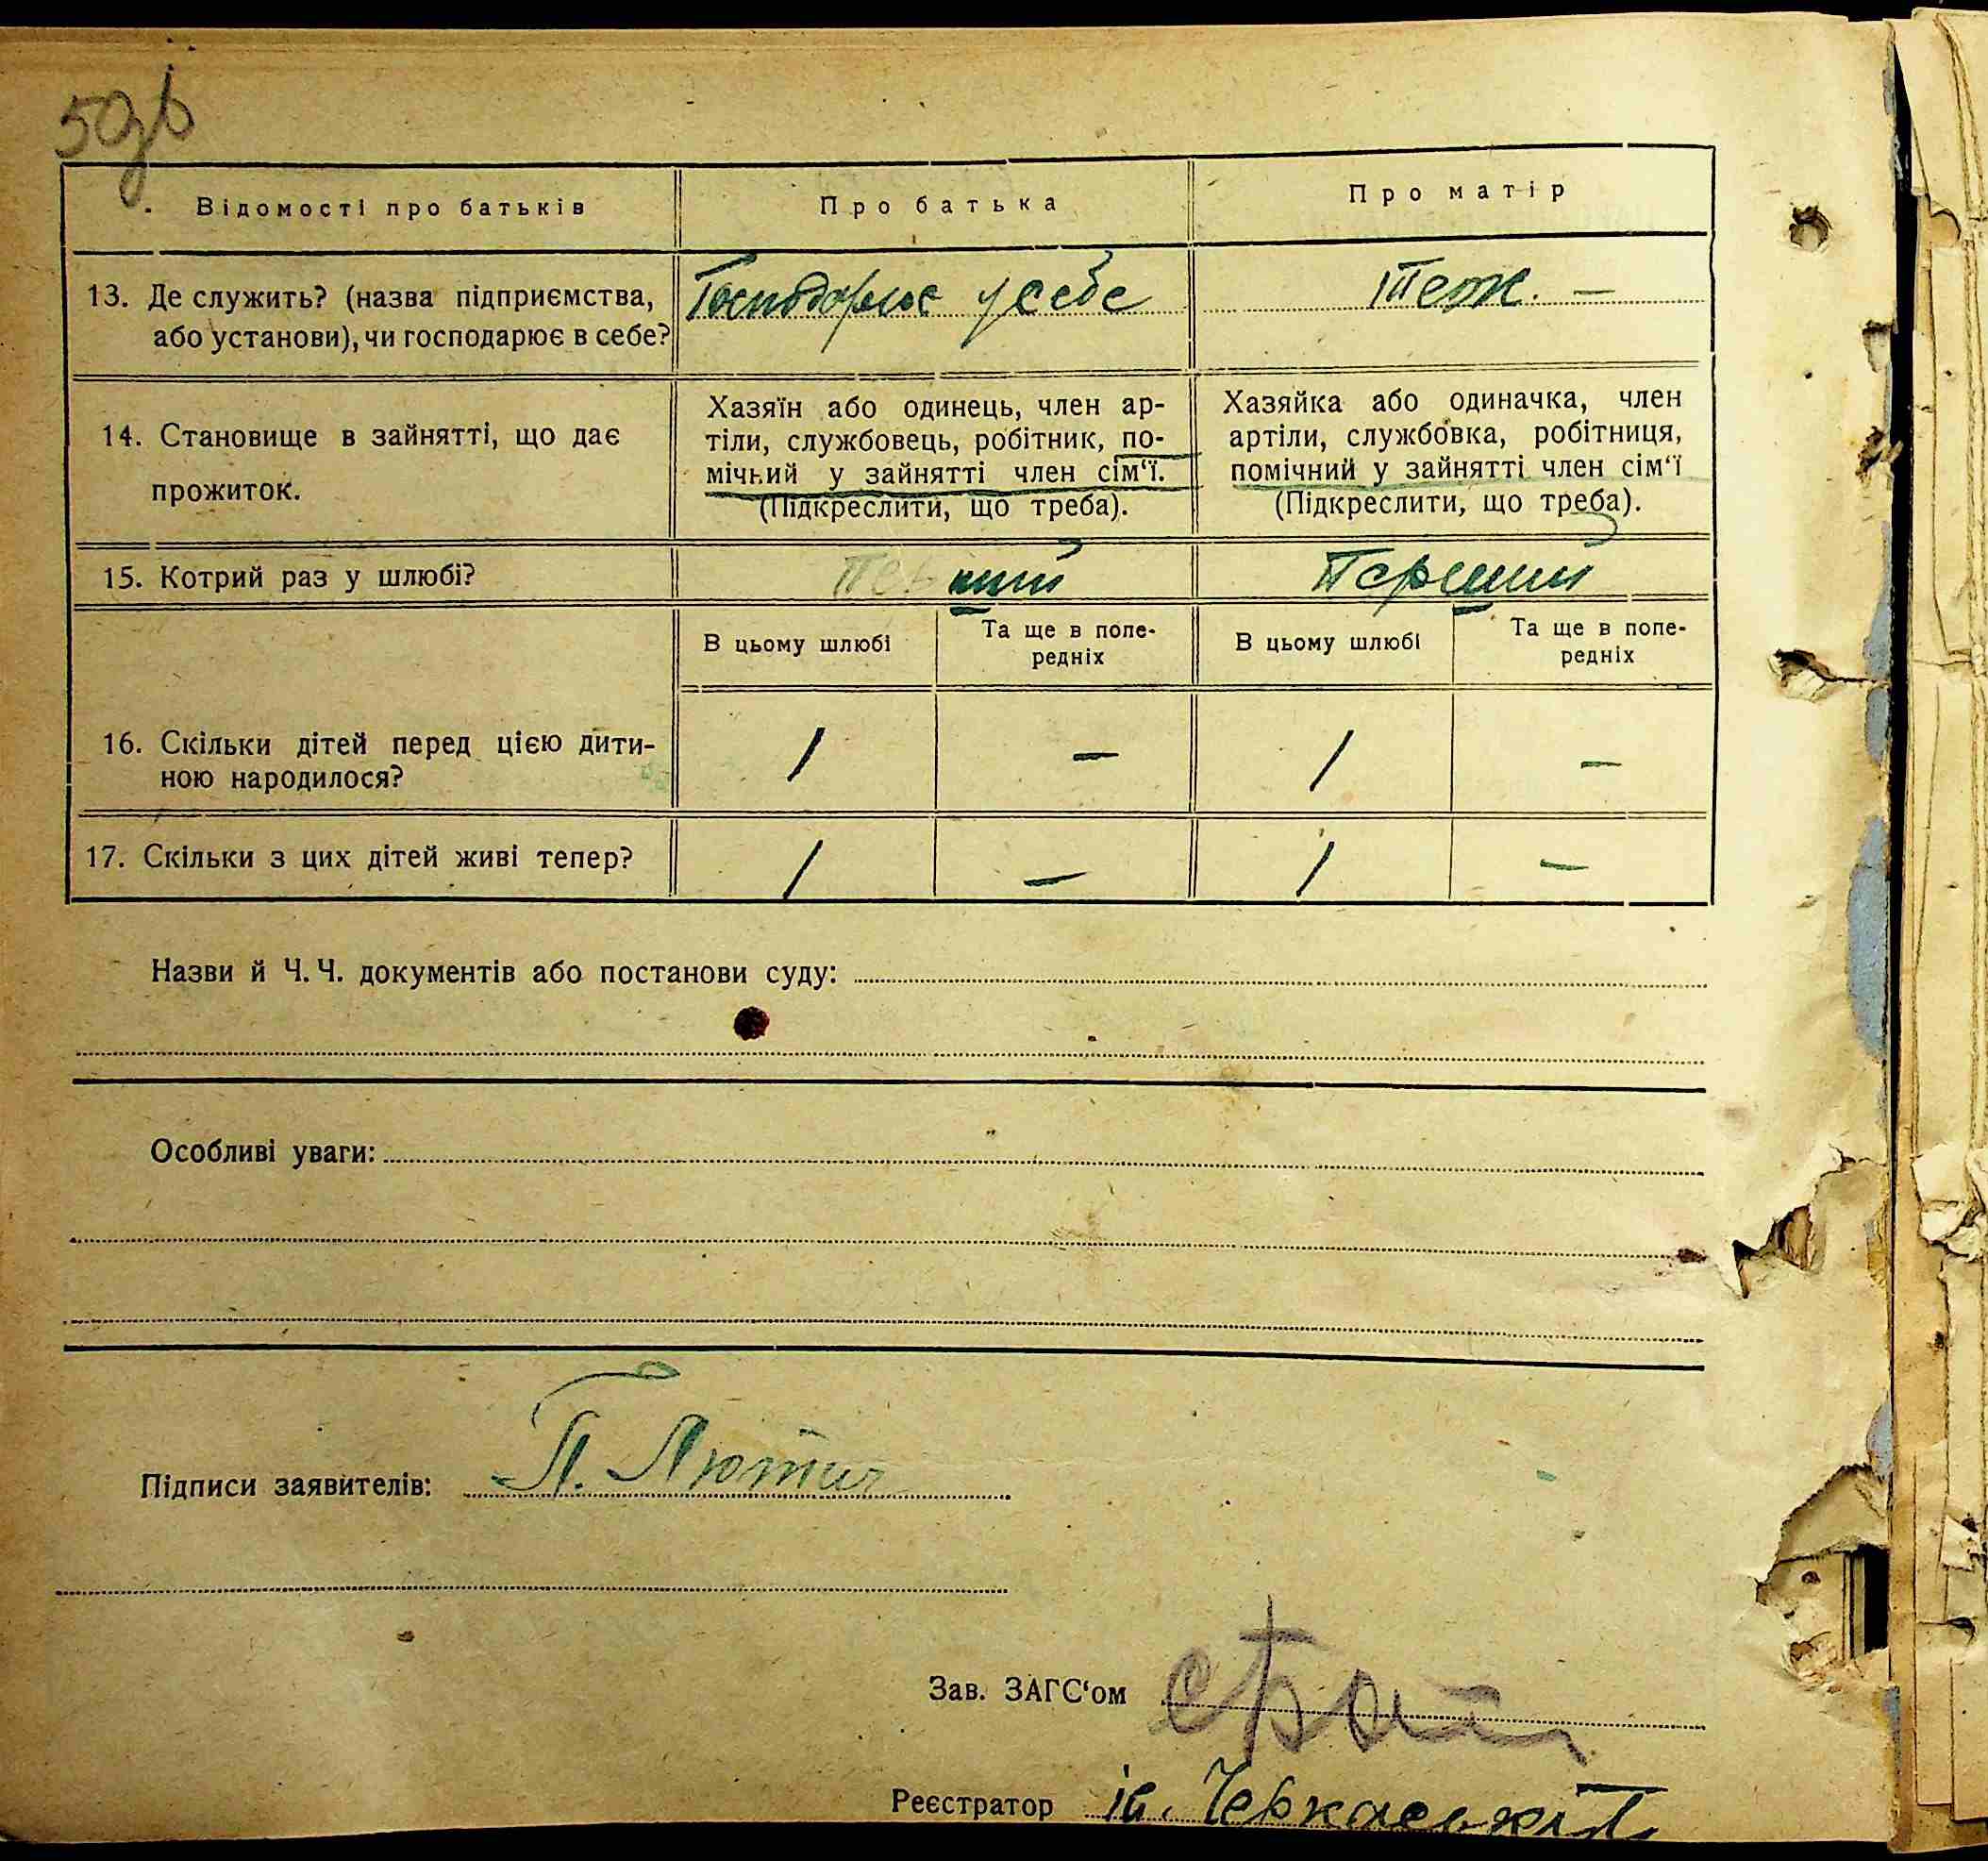 50зв
Відомості про батьків
Про батька
Про матір
13. Де служить? (назва підприємства,
або установи), чи господарює в себе?
Господарює у себе
Теж. —
14. Становище в зайнятті, що дає
прожиток.
Хазяїн або одинець, член ар-
тіли, службовець, робітник, по-
мічний у зайнятті член сім‘ї.
(Підкреслити, що треба).
Хазяйка або одиначка, член
артіли, службовка, робітниця,
помічний у зайнятті член сім‘ї
(Підкреслити, що треба).
15. Котрий раз у шлюбі?
Перший
Перший
В цьому шлюбі
Та ще в попе-
редніх
В цьому шлюбі
Та ще в попе-
редніх
16. Скільки дітей перед цією дити-
ною народилося?
1 — 1 —
17. Скільки з цих дітей живі тепер?
1 — 1 —
Назви й Ч. Ч. документів або постанови суду:
Особливі уваги:
Підписи заявителів: П. Лютич
Зав. ЗАГС‘ом
Реєстратор Ів. Черкаський